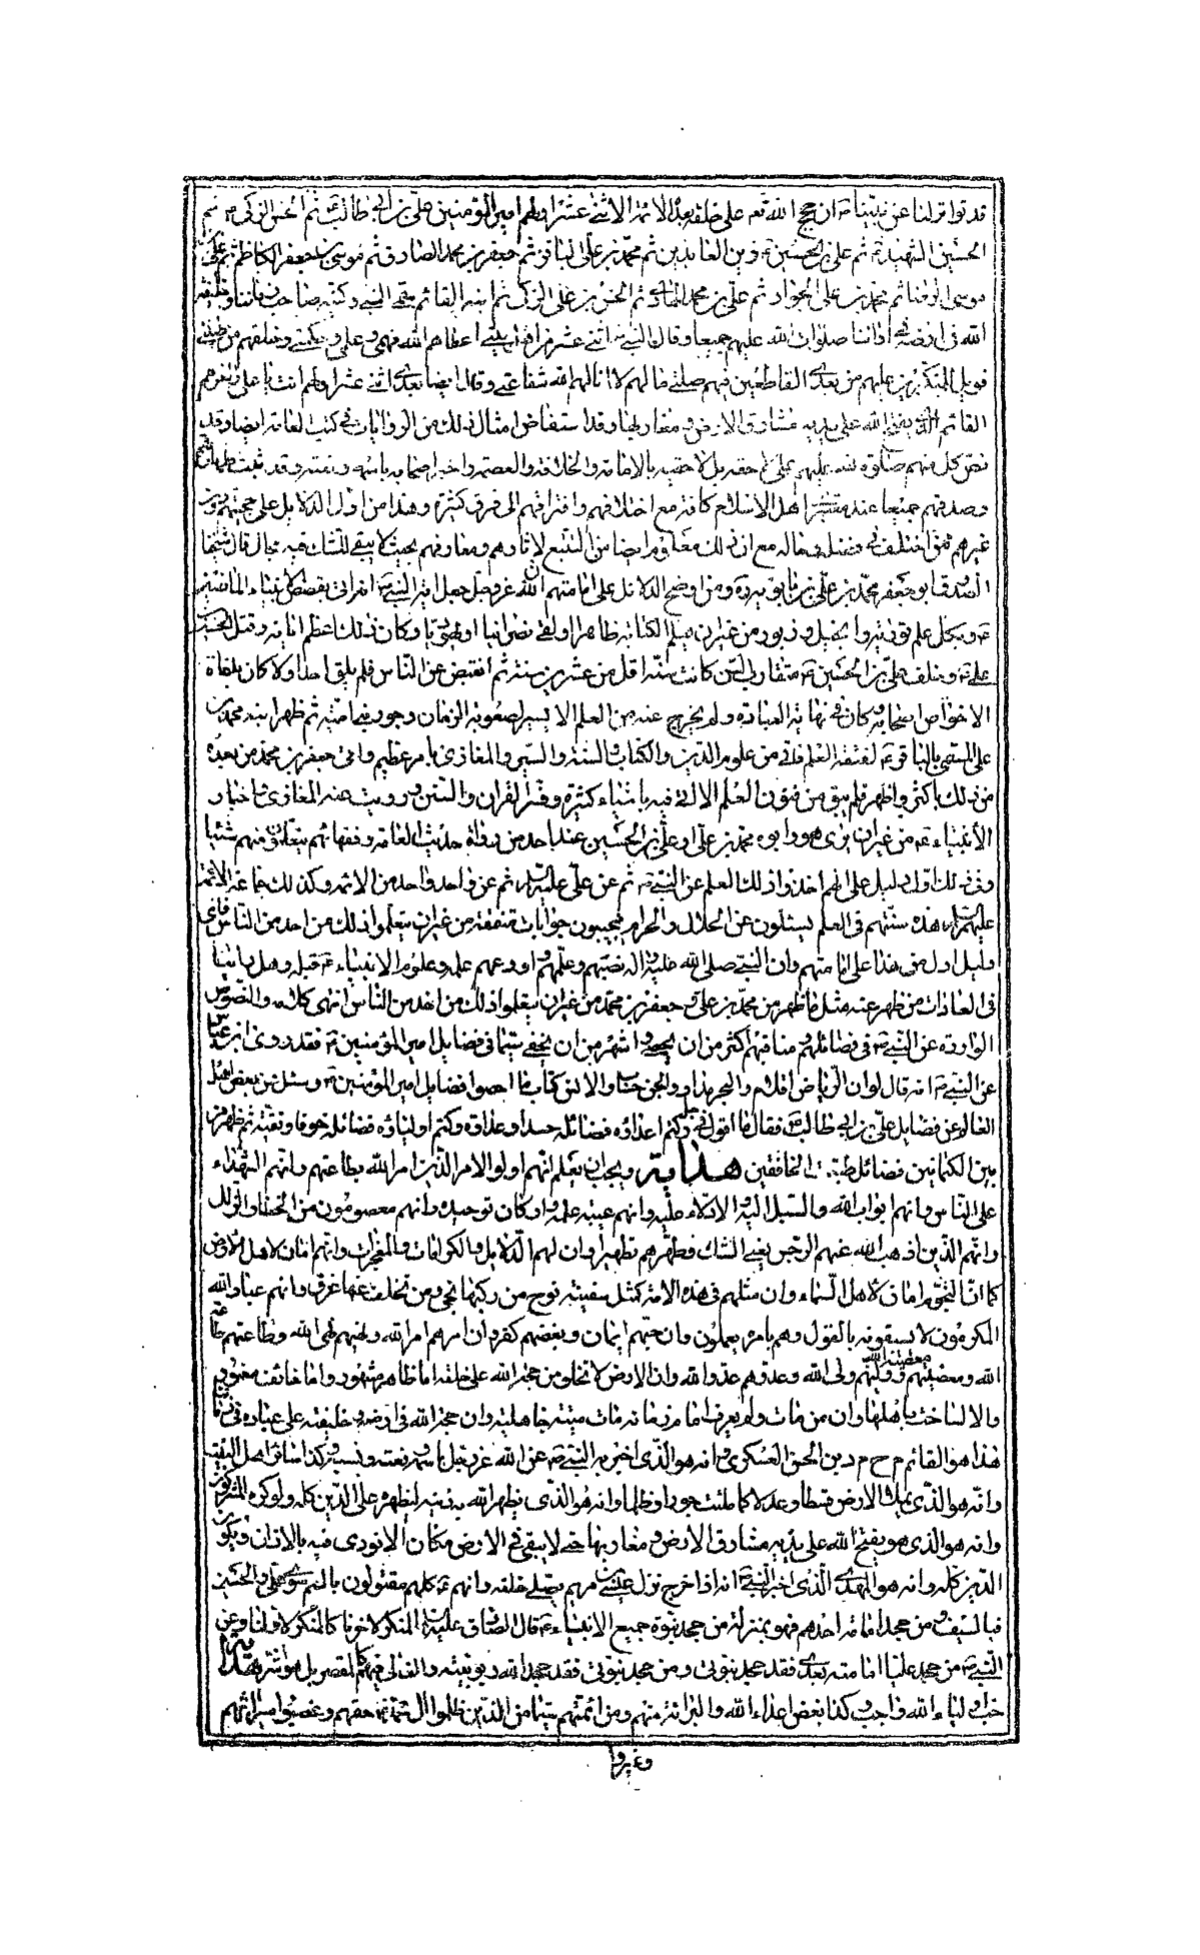 قد تواتر لنا عن نبينا ص ان حجج الله تعم على خلقه بعده الائمة الاثنى عشر اولهم امير المؤمنين على بن ابى طالب ثم الحسن الزكى ثم
الحسين الشهيد ثم على بن الحسين زين العابدين ثم محمد بن على الباقر ثم جعفر بن محمد الصادق ثم موسى بن جعفر الكاظم ثم على بن
موسى الرضا ثم محمد بن على الجواد ثم على بن محمد الهادى ثم الحسن بن على الزكى ثم ابنه القائم سمى النبى و كنيه صاحب زماننا و خليفة
الله فى ارضه فى اواننا صلوات الله عليهم جميعا و قال النبى ص اثنى عشر من اهل بيتى اعطاهم الله فهمى و علمى و حكمتى و خلقهم من طينتى
فويل للمتكبرين عليهم من بعدى القاطعين فيهم صلتى ما لهم لا انالهم الله شفاعتى و قال ايضا بعدى اثنى عشر اولهم انت يا على و اخرهم
القائم الذى يفتح الله على يديه مشارق الارض و مغاربها و قد استفاض امثال ذلك من الروايات فى كتب العامة ايضا و قد
نص كل منهم صلوة الله عليهم على من بالامامة و الخلافة و العصمة و اخبر اصحابه باسمه و نعته و قد ثبت
و صدقهم جميعا عند اهل الاسلام كافة مع اختلافهم و افتراقهم الى فرق كثيرة و هذا من اول الدلايل على حجيتهم دون
غيرهم ممن اختلف فى فضله و حاله مع ان ذلك معلوم ايضا من التتبع لاثارهم و معارفهم بحيث لا يبقى للشك فيه مجال قال شيخنا
الصدوق ابو جعفر محمد بن على بن بابويه ره و من اوضح الدلائل على امامتهم ان الله عز و جل جعل اية النبى ص انه اتى بقصص الانبياء الماضين
ع و بكل علم توراة و انجيل و زبور من غير ان يعلم الكتابة ظاهرا او لقى نصرانيا او يهوديا و كان ذلك اعظم اياته و قتل الحسين بن
على ع و خلف على بن الحسين ع متقارب السن كانت سنه اقل من عشرين سنة ثم انقبض عن الناس فلم يلق احدا و لا كان يلقاه
الا خواص اصحابه و كان فى نهاية العبادة و لم يخرج عنه من العلم الا يسير لصعوبة الزمان و جور بنى امية ثم ظهر ابنه محمد بن
على المسمى بالباقر ع لفتقه العلم فاتى من علوم الدين و الكتاب و السنة و السير و المغازى بامر عظيم و اتى جعفر بن محمد من بعده
من ذلك بما كثر و اظهر فلم يبق من فنون العلم الا اتى فيه باشياء كثيرة و فسر القران و السنن و رويت عنه المغازى و اخبار
الأنبياء ع من غير ان يرى هو و ابوه محمد بن على او على بن الحسين عند احد من رواة حديث العامة و فقهائهم يتعلمون منهم شيئا
و فى ذلك ادل دليل على انهم اخذوا ذلك العلم عن النبى ص ثم عن على عليه السلام ثم عن واحد واحد من الائمة و كذلك جماعة الائمة
عليهم السلام هذه سنتهم فى العلم يسئلون عن الحلال و الحرام فيجيبون جوابات متفقة من غير ان يتعلموا ذلك من احد من الناس فاى
دليل ادل من هذا على امامتهم و ان النبى صلى الله عليه و اله نصبهم و علمهم و اودعهم علمه و علوم الانبياء ع قبله و هل راينا
فى العادات من ظهر عنه مثل ما ظهر من محمد بن على و جعفر بن محمد من غير ان يتعلموا ذلك من احد من الناس انتهى كلامه و النصوص
الواردة عن النبى ص فى فضائلهم و مناقبهم اكثر من ان يحصى و اشهر من ان يخفى سيما فى فضايل امير المؤمنين ع فقد روى ابن عباس
عن النبى ص انه قال لو ان الرياض اقلام و البحر مداد و الجن حساب و الانس كتاب ما احصوا فضايل امير المؤمنين ع و سئل عن بعض اهل
العالم عن فضايل على بن ابى طالب ع فقال ما اقول فى رجل كتم اعداؤه فضائله حسدا و عداوة و كتم اولياؤه فضائله خوفا و تقية ثم ظهر من
بين الكتمانين فضائل طبقت الخافقين هداية و يجب ان يعلم انهم اولوا الامر الذين امر الله بطاعتهم و انهم الشهداء
على الناس و انهم ابواب الله و السبيل اليه و الادلاء عليه و انهم عيبة علمه و اركان توحيده و انهم معصومون من الخطاء و الزلل
و انهم الذين اذهب الله عنهم الرجس يعنى الشك و طهرهم تطهيرا و ان لهم الدلايل و الكرامات و المعجزات و انهم امان لاهل الارض
كما ان النجوم امان لاهل السماء و ان مثلهم فى هذه الامة كمثل سفينة نوح من ركبها نجى و من تخلف عنها غرق و انهم عباد الله
المكرمون لا يسبقونه بالقول و هم بامره يعملون و ان حبهم ايمان و بغضهم كفر و ان امرهم امر الله و نهيهم نهى الله و طاعتهم طاعة
الله و معصيتهم معصية الله و وليهم ولى الله و عدوهم عدو الله و ان الارض لا تخلو من حجة الله على خلقه اما ظاهر مشهور و اما خائف مغمور
و الا لساخت باهلها و ان من مات و لم يعرف امام زمانه مات ميتة جاهلية و ان حجة الله فى ارضه و خليفته على عباده فى زماننا
هذا هو القائم م ح م د بن الحسن العسكرى و انه هو الذى اخبر به النبى ص عن الله عز و جل باسمه و نعته و نسبه و كذا سائر اهل البيت
و انه هو الذى يملا الارض قسطا و عدلا كما ملئت جورا و ظلما و انه هو الذى يظهر الله به دينه ليظهره على الدين كله و لو كره المشركون
و انه هو الذى هو يفتح الله على يديه مشارق الارض و مغاربها حتى لا يبقى فى الارض مكان الا نودى فيه بالاذان و يكون
الدين كله و انه هو المهدى الذى اخبر النبى ص انه اذا خرج نزل عيسى بن مريم يصلى خلفه و انهم ع كلهم مقتولون بالسم سوى على و الحسين
فبالسيف و من جحد امامة احدهم فهو بمنزلة من جحد نبوة جميع الانبياء ع قال الصادق عليه السلام المنكر لاخرنا كالمنكر لاولنا و عن
النبى ص من جحد عليا امامته بعدى فقد جحد نبوتى و من جحد نبوتى فقد جحد الله ربوبيته و الغالى فيهم كالمقصر بل هو اشر هداية
حب اولياء الله واجب و كذا بغض اعداء الله و البراءة منهم و من ائمتهم سيما من الذين ظلموا ال محمد حقهم و غصبوا ميراثهم
و غيروا